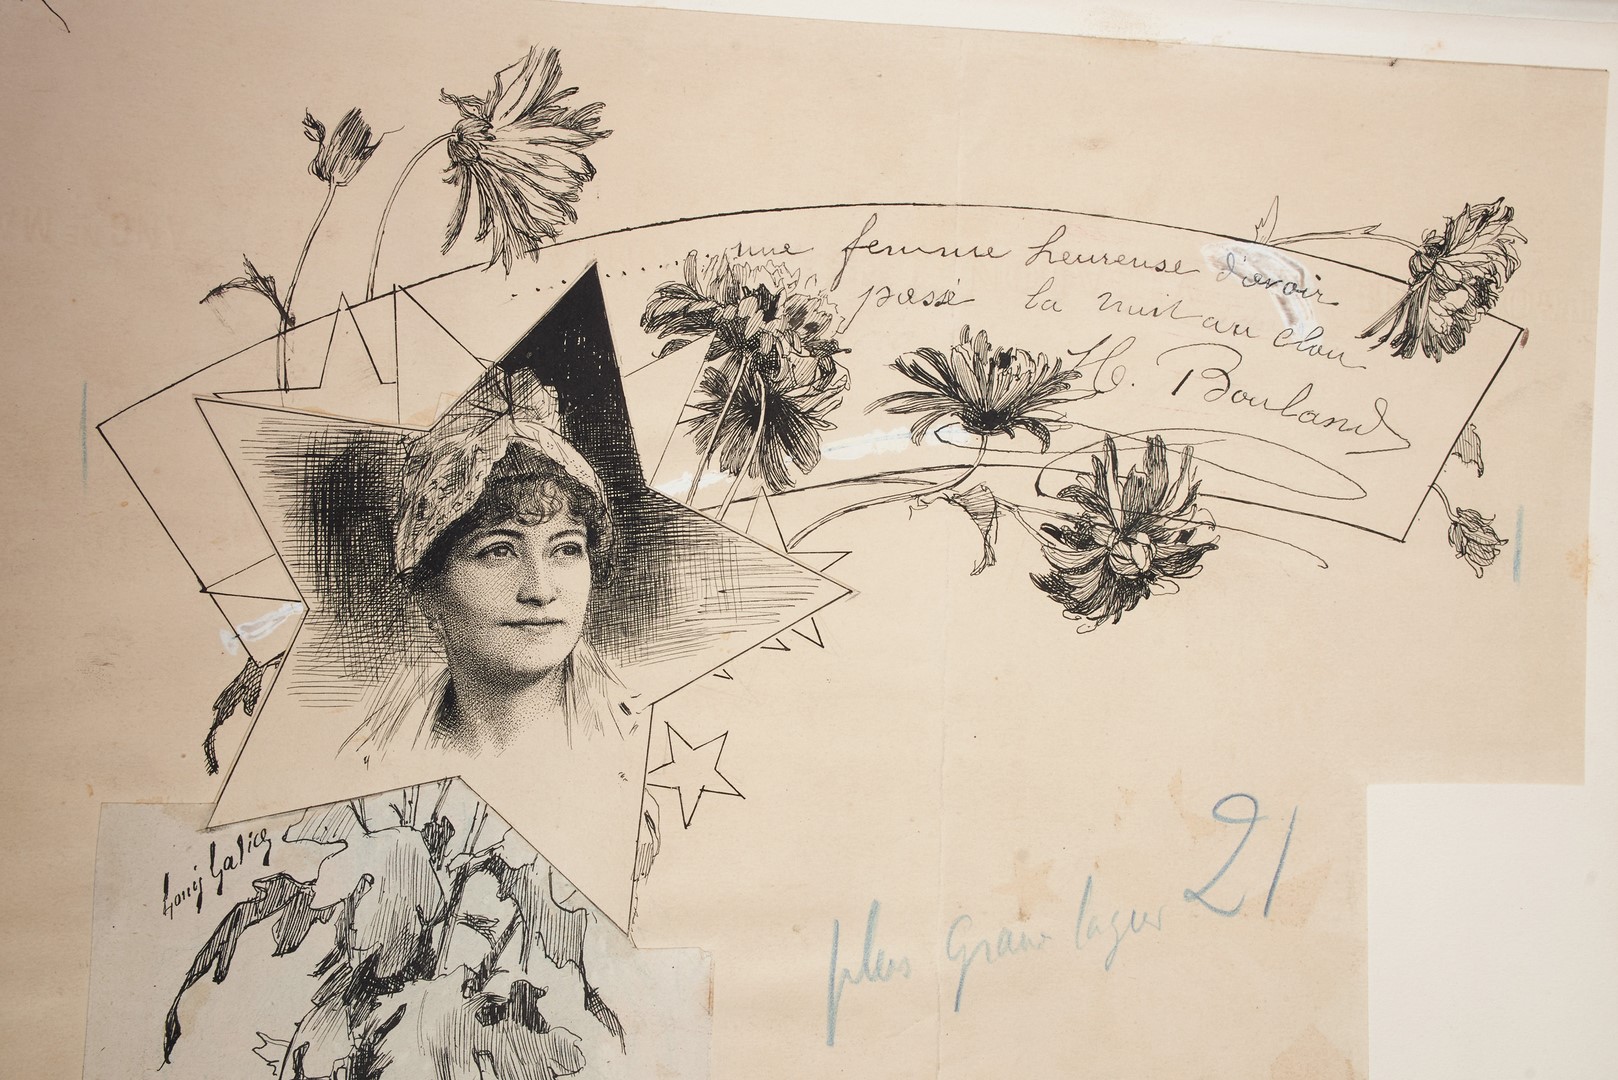 une femme heureuse d'avoir
passé la nuit au clou
H. Bouland
Louis Galice
plus Grand
21